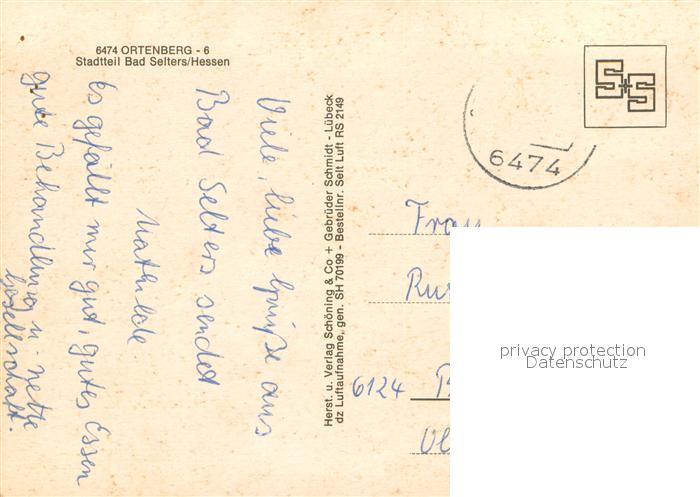 6474 ORTENBERG - 6
Stadtteil Bad Selters/Hessen
Viele, liebe Grüße aus
Bad Selters sendet
Mathilde
Es gefällt mir gut, gutes Essen
gute Behandlung u. nette
Gesellschaft.
Herst. u. Verlag Schöning & Co + Gebrüder Schmidt - Lübeck
dz Luftaufnahme, gen. SH 70199 - Bestellnr. Selt Luft RS 2149
S+S
6474
Frau
6124
privacy protection
Datenschutz